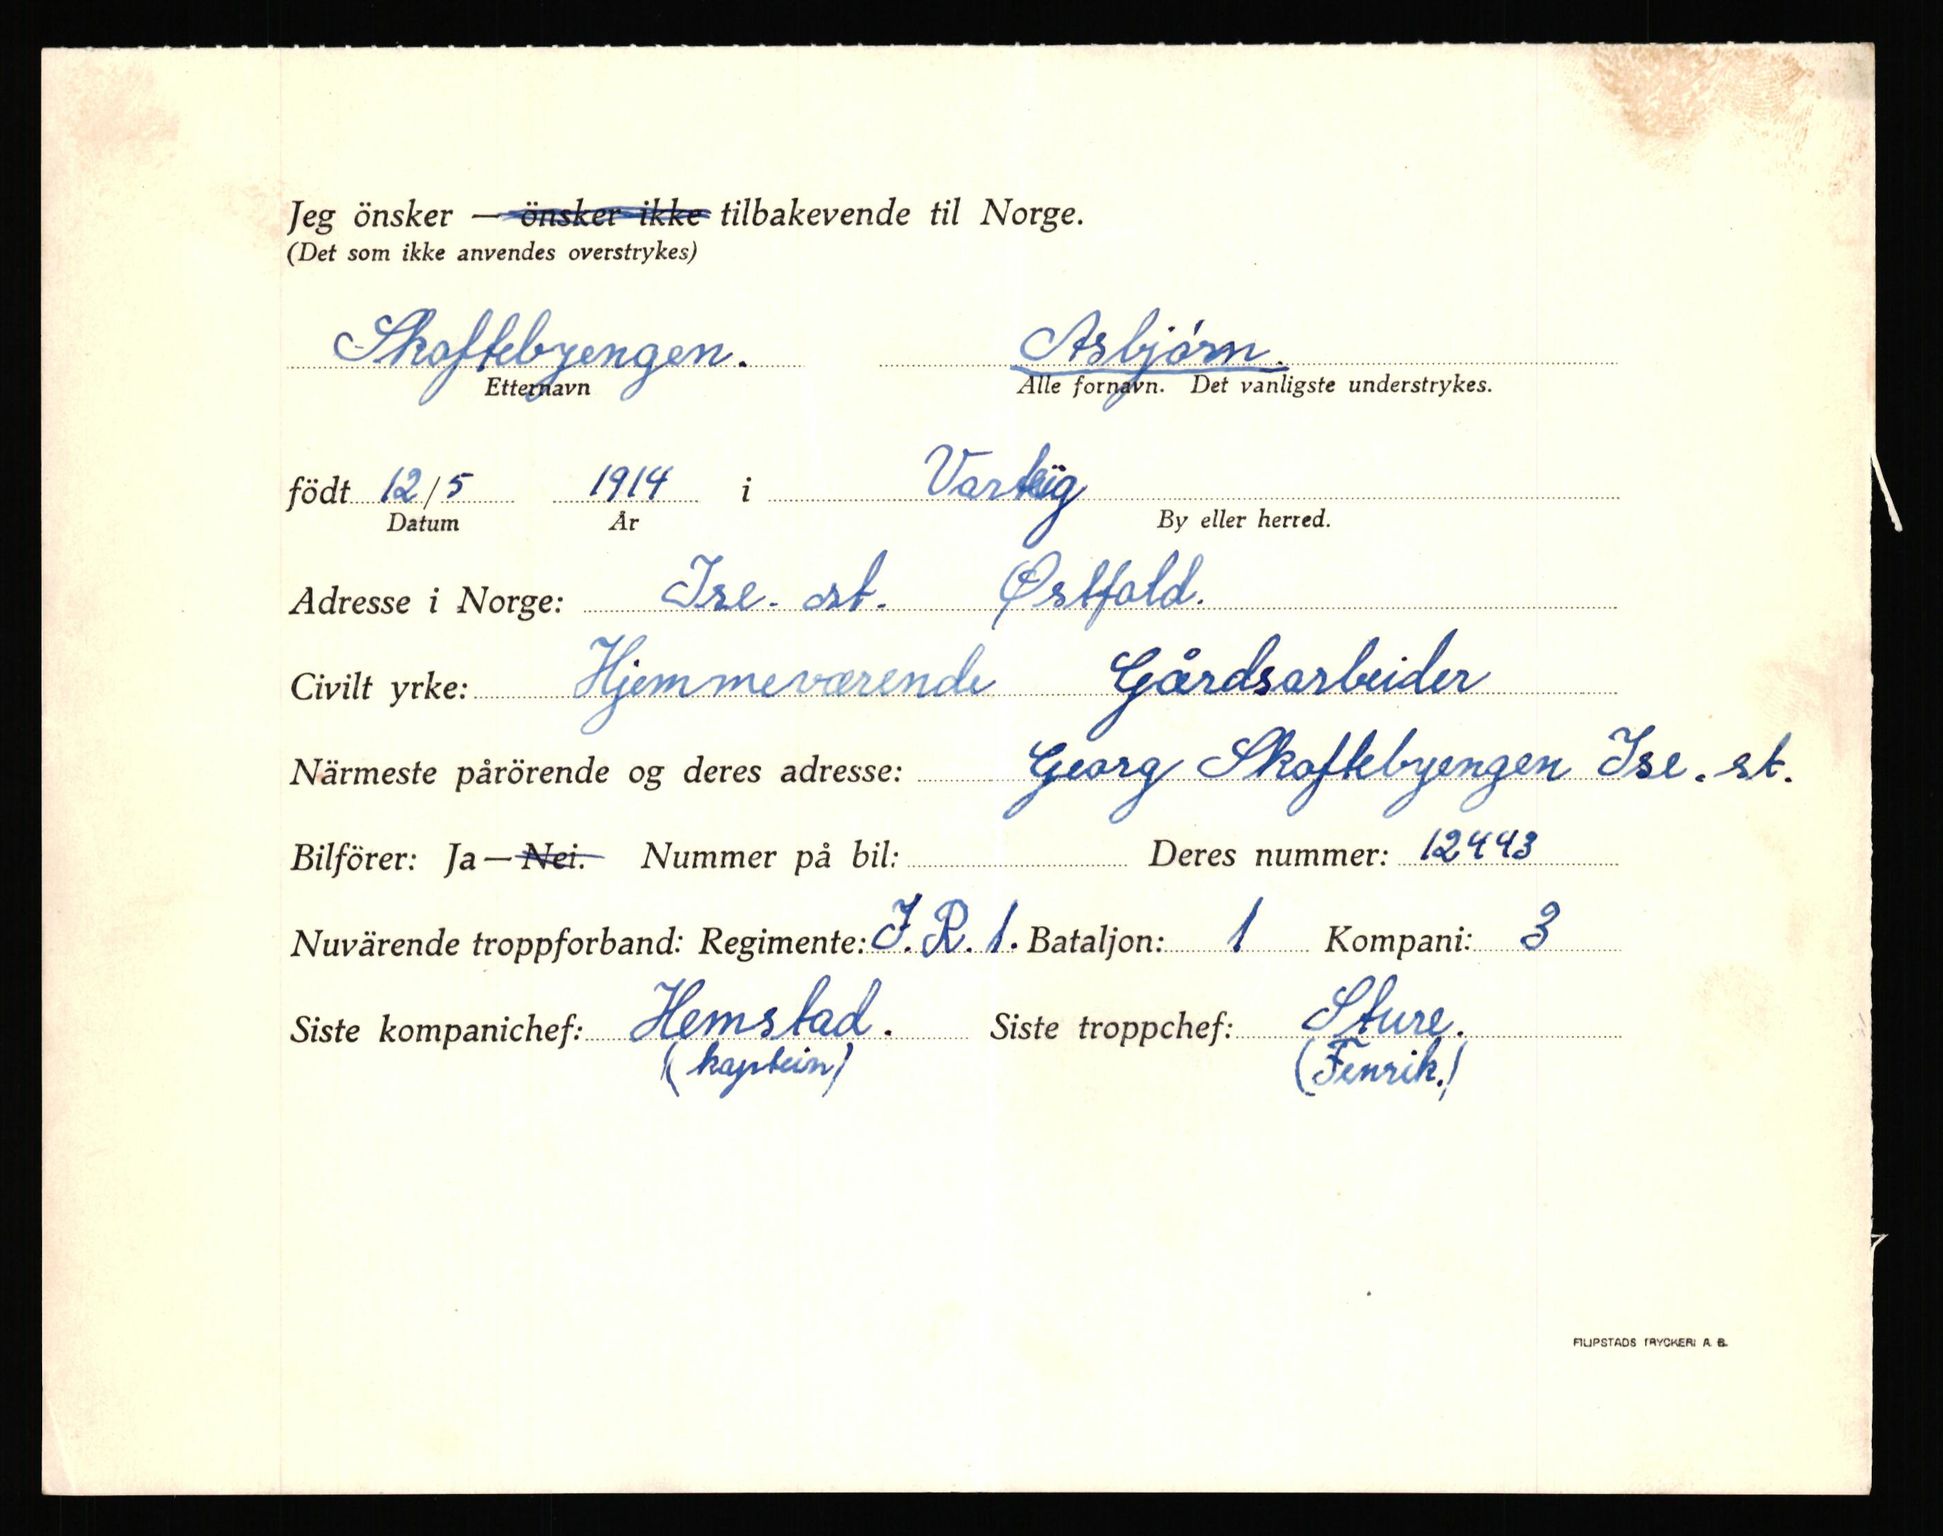 Jeg önsker — önsker ikke tilbakevende til Norge.
(Det som ikke anvendes overstrykes)
Skoftebyengen. Asbjørn.
Etternavn Alle fornavn. Det vanligste understrykes.
födt 12/5 1914 i Varteig
Datum År By eller herred.
Adresse i Norge: Ise. st. Østfold.
Civilt yrke: Hjemmeværende Gårdsarbeider
Närmeste pårörende og deres adresse: Georg Skoftebyengen Ise. st.
Bilförer: Ja — Nei. Nummer på bil: Deres nummer: 12443
Nuvärende troppforband: Regimente: I.R.1. Bataljon: 1 Kompani: 3
Siste kompanichef: Hemstad. Siste troppchef: Sture.
(kaptein) (Fenrik.)
FILIPSTADS TRYCKERI A. B.